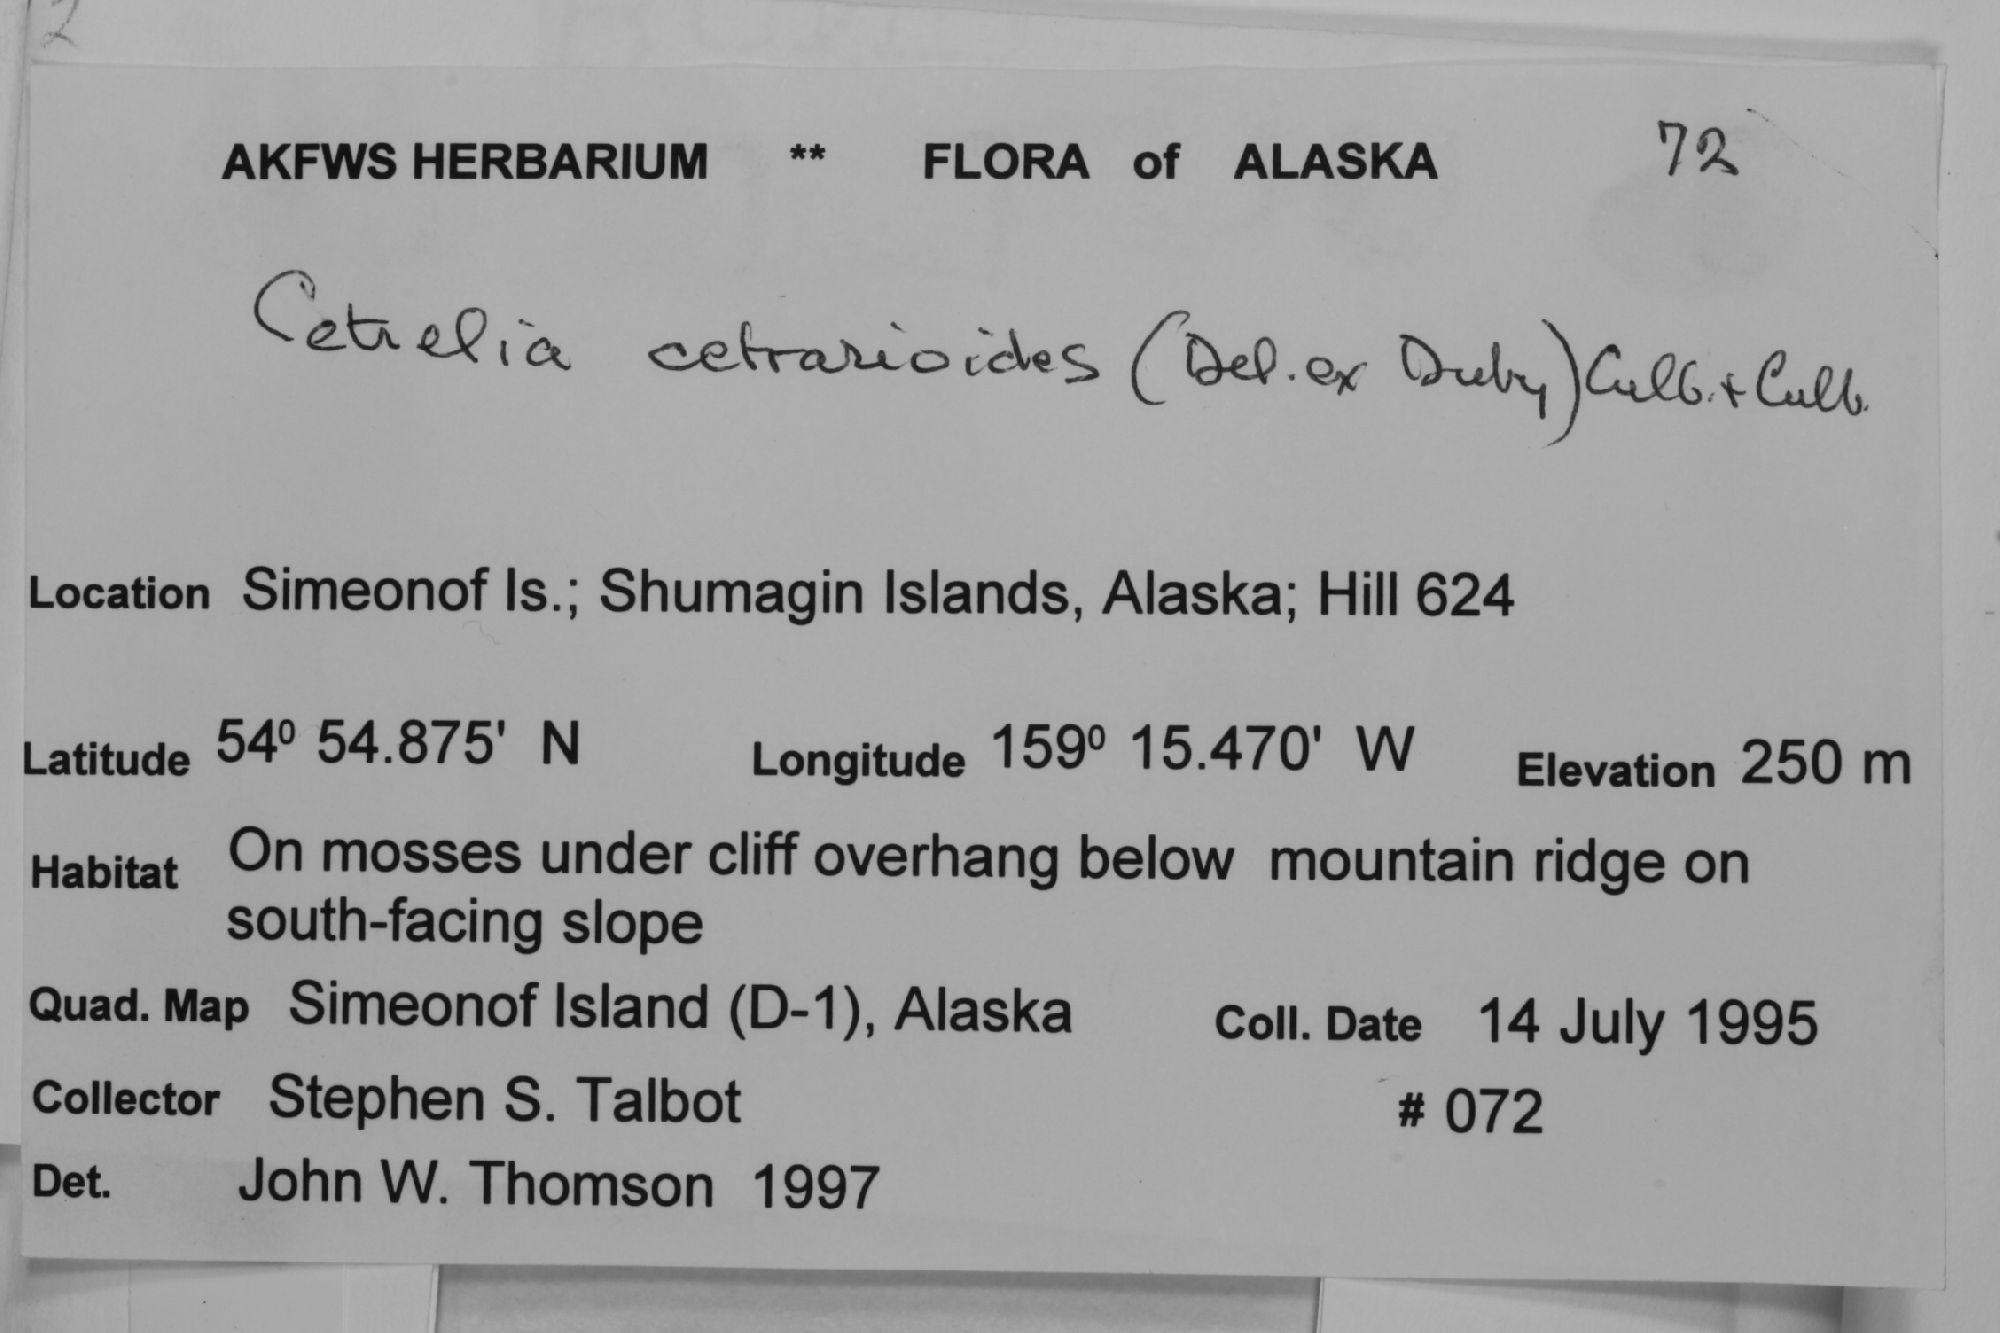 2
AKFWS HERBARIUM ** FLORA of ALASKA 72
Cetrelia cetrarioides (Del. ex Duby) Culb. + Culb.
Location Simeonof Is.; Shumagin Islands, Alaska; Hill 624
Latitude 54⁰ 54.875' N Longitude 159⁰ 15.470' W Elevation 250 m
Habitat On mosses under cliff overhang below mountain ridge on
south-facing slope
Quad. Map Simeonof Island (D-1), Alaska Coll. Date 14 July 1995
Collector Stephen S. Talbot # 072
Det. John W. Thomson 1997